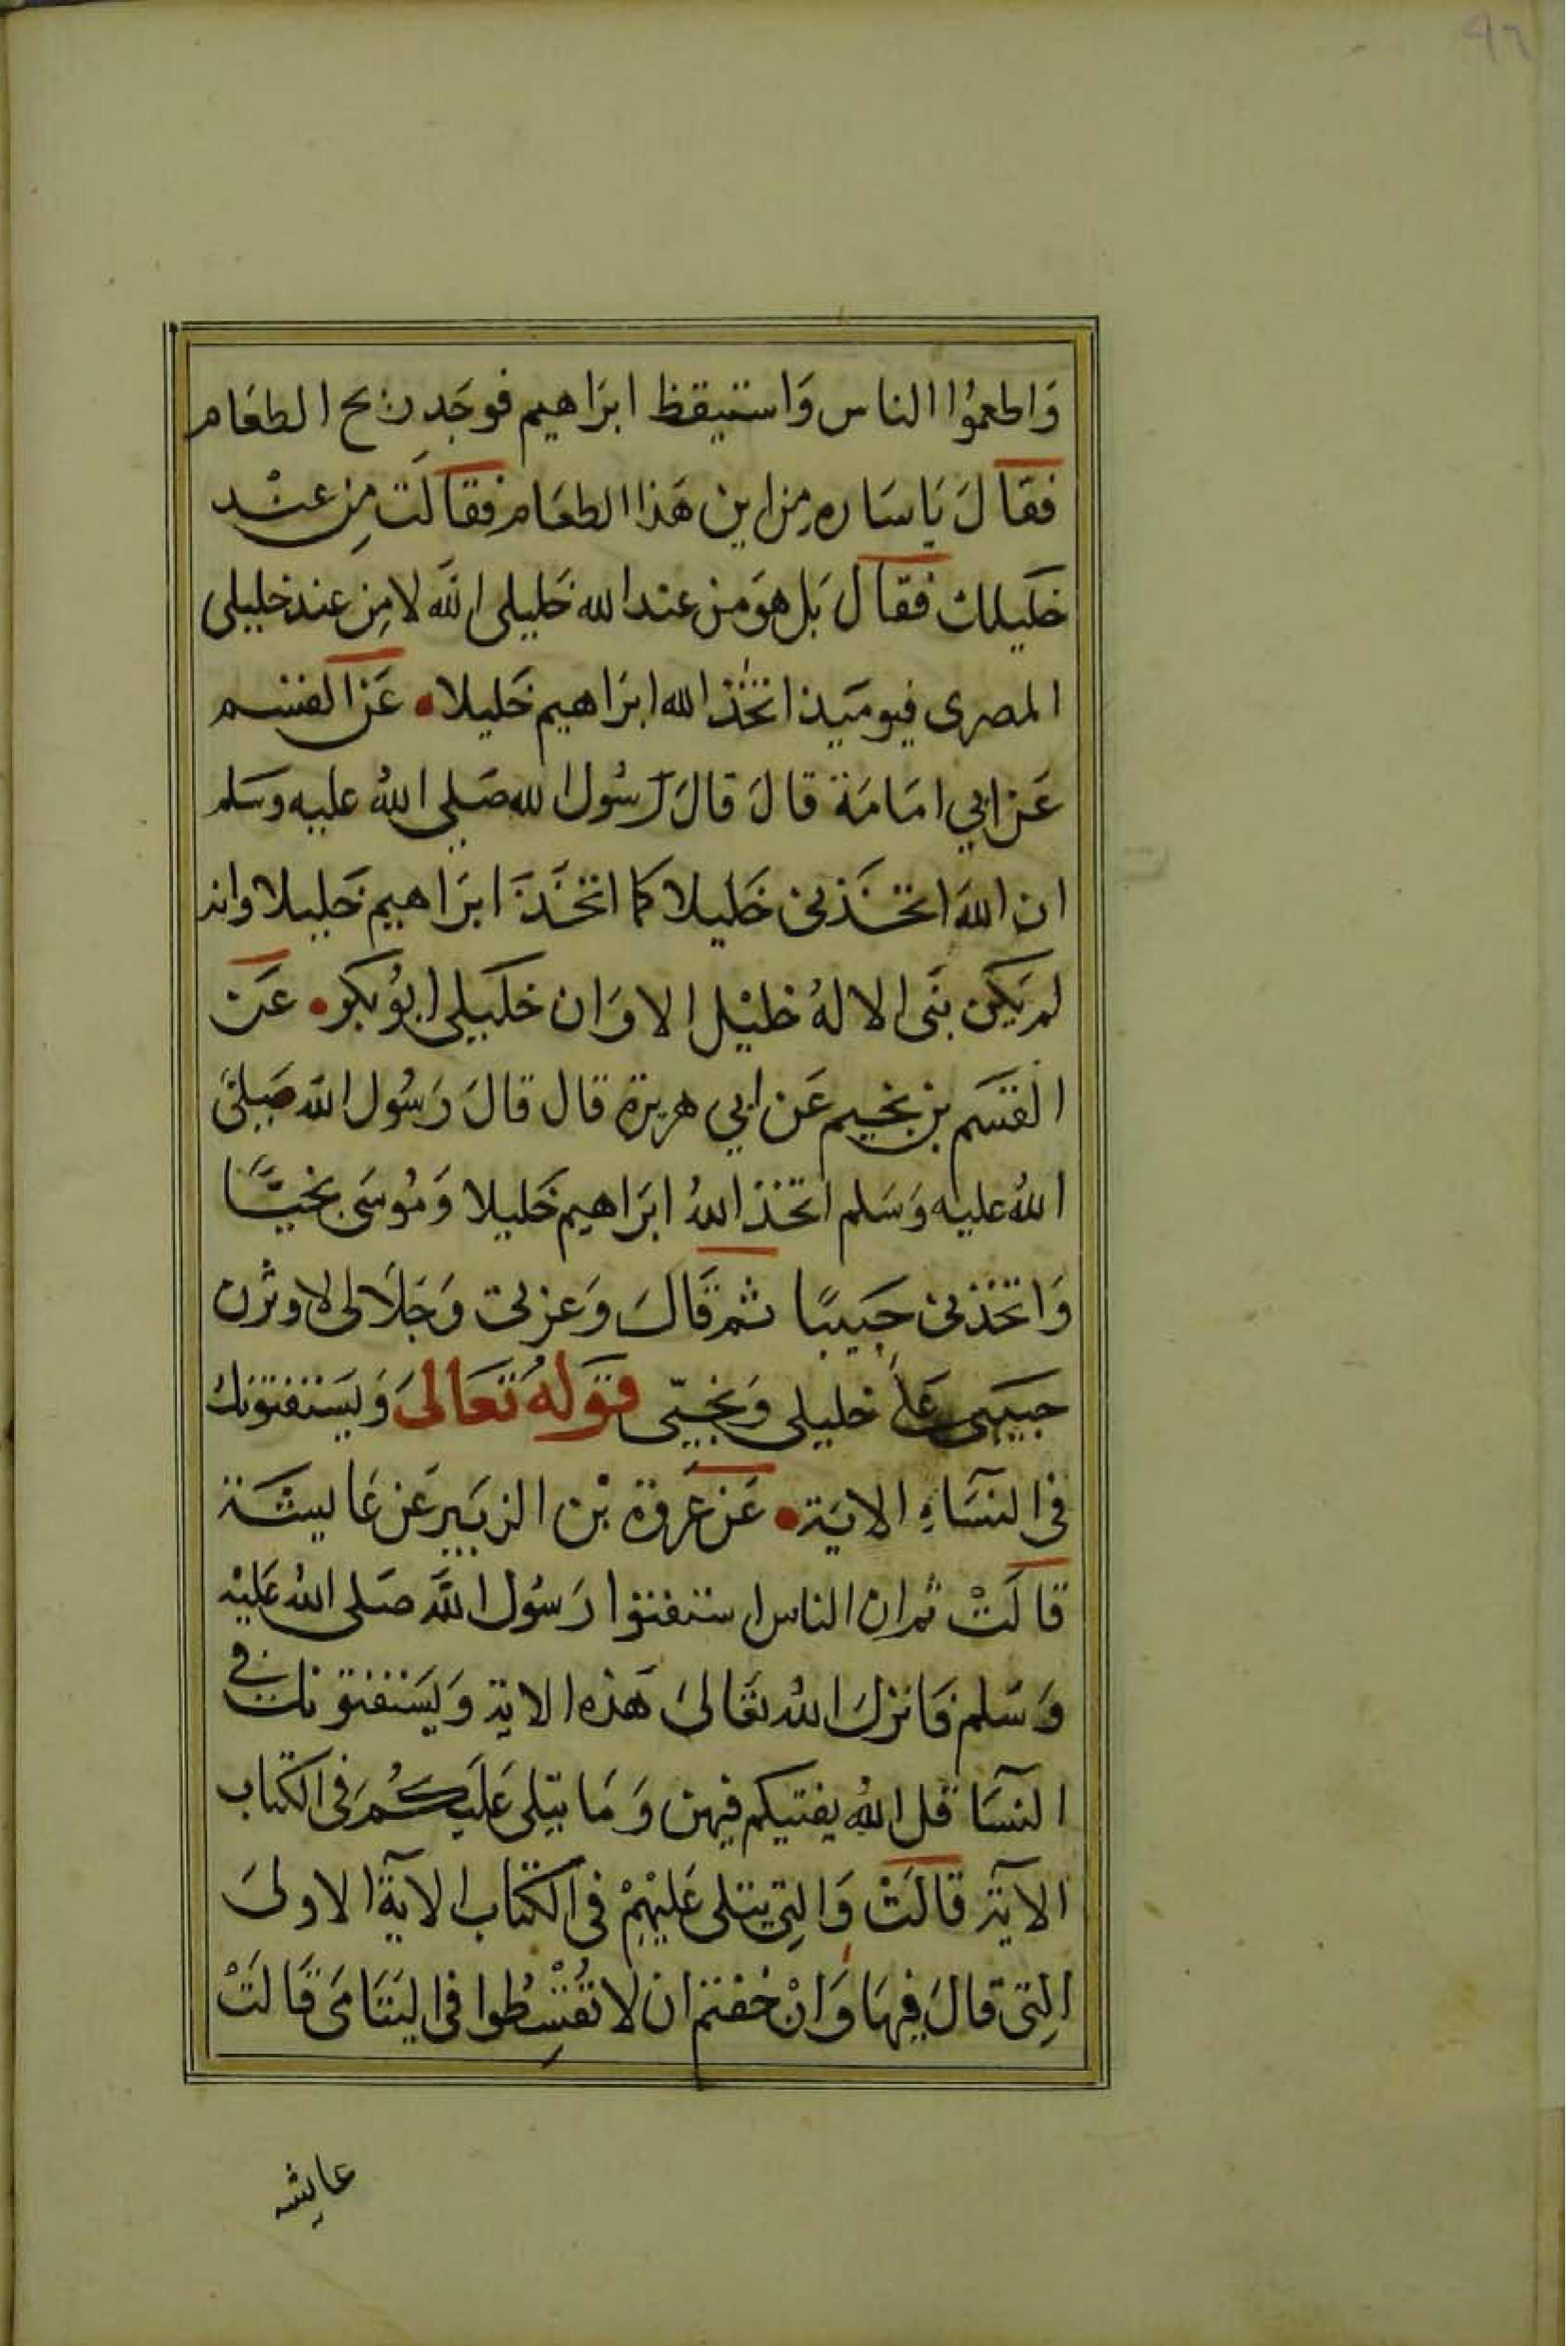 ٩٦
وَاطعمُوا الناس وَاستيقظ ابرَاهيم فوجَد ريح الطعَام
فقالَ يَا سَاره مِن اين هَذا الطعَام فقالَت مِن عنْد
خَليلك فقال بَل هوَ من عند الله خَليلى الله لا مِن عند خليلى
المصرى فيوميَذ اتخَذ الله ابرَاهيم خَليلا • عَن القسم
عَن ابي امَامَة قالَ قالَ رَسُول الله صَلى اللهُ عليه وسَلم
ان اللهَ اتخَذنى خَليلا كما اتخَذَ ابرَاهيم خَليلا وانه
لم يَكن بنَى الا لهُ خليْل الا وَان خَليلى ابُو بَكر • عَن
القسَم بن نجيم عَن ابي هريرة قال قالَ رَسُول الله صَلىَّ
اللهُ عليه وَسَلم اتخذ اللهُ ابرَاهيم خَليلا وَمُوسَى نجيَّا
وَاتخذنى حَبيبًا ثم قَالَ وَعزتى وَجَلَالى لاوثرن
حَبيبى عَلَى خليلى وَنجيّى قَولهُ تَعَالىَ وَيَستفتونك
فى النسَآءِ الاية • عَن عُروة بْن الزبَير عَن عَاليشَة
قالَتْ ثم ان الناس استفتوا رَسُول اللَّه صَلى الله عَليْه
وَسَلم فَانزلَ اللهُ تعَالىَ هَذه الاية وَيَستفتونك فى
النسَآ قل اللهُ يفتيكم فيهن وَمَا يتلى عَليكُم فى الكتاب
الآية قالَتْ وَالتِى يتلى عَليْهمْ فى الكتاب الآية الاولىَ
التِى قالَ فِيهَا وَانْ خفتم ان لَا تقُسْطِوا فى اليَتَامَى قَالَتْ
عايشه